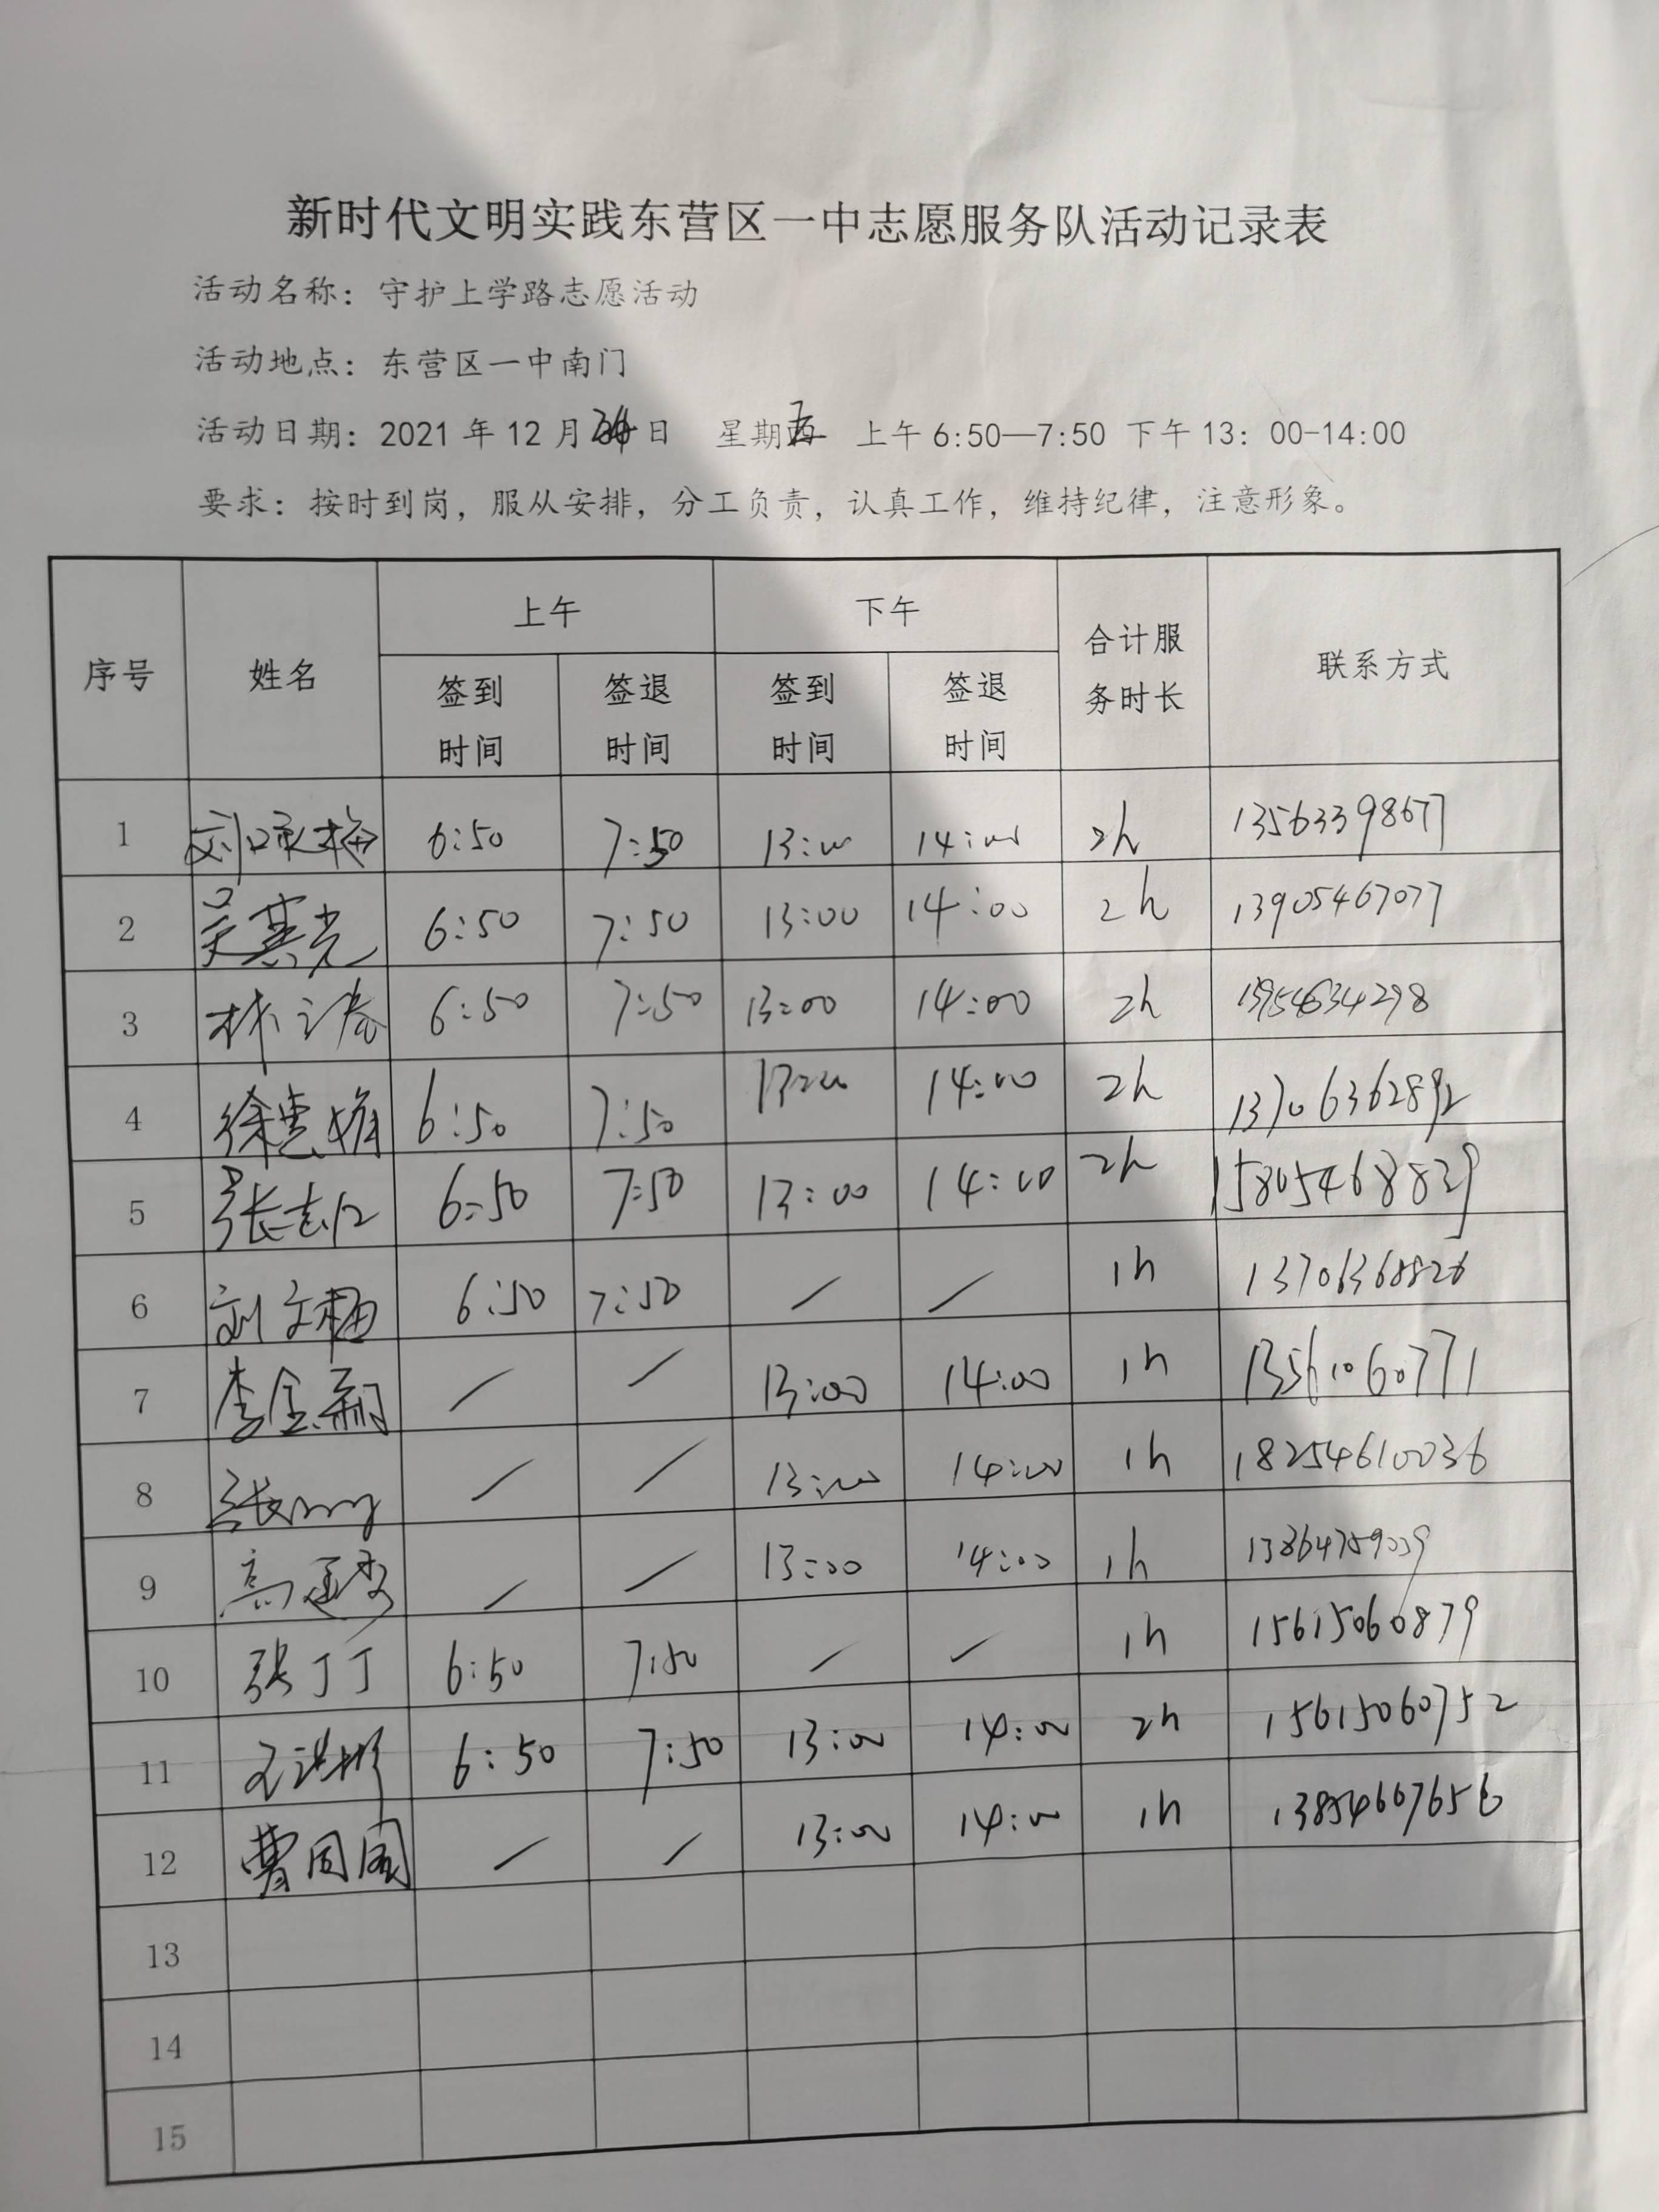 新时代文明实践东营区一中志愿服务队活动记录表
活动名称：守护上学路志愿活动
活动地点：东营区一中南门
活动日期：2021 年 12 月 日 星期五 上午 6:50—7:50 下午 13：00-14:00
要求：按时到岗，服从安排，分工负责，认真工作，维持纪律，注意形象。
序号 姓名 上午 下午 合计服务时长 联系方式
签到时间 签退时间 签到时间 签退时间
1 6:50 7:50 13:00 14:00 2h 13563398677
2 吴英光 6:50 7:50 13:00 14:00 2h 13905467077
3 林 6:50 7:50 13:00 14:00 2h 15954634298
4 徐 6:50 7:50 13:00 14:00 2h 13706362892
5 张志 6:50 7:50 13:00 14:00 2h 15805468829
6 刘文 6:50 7:50 / / 1h 13706368826
7 李金 / / 13:00 14:00 1h 13561060771
8 张 / / 13:00 14:00 1h 18254610036
9 高延 / / 13:00 14:00 1h
10 张丁丁 6:50 7:50 / / 1h 15615060879
11 王洪彬 6:50 7:50 13:00 14:00 2h 15615060752
12 曹同国 / / 13:00 14:00 1h 13854667656
13
14
15